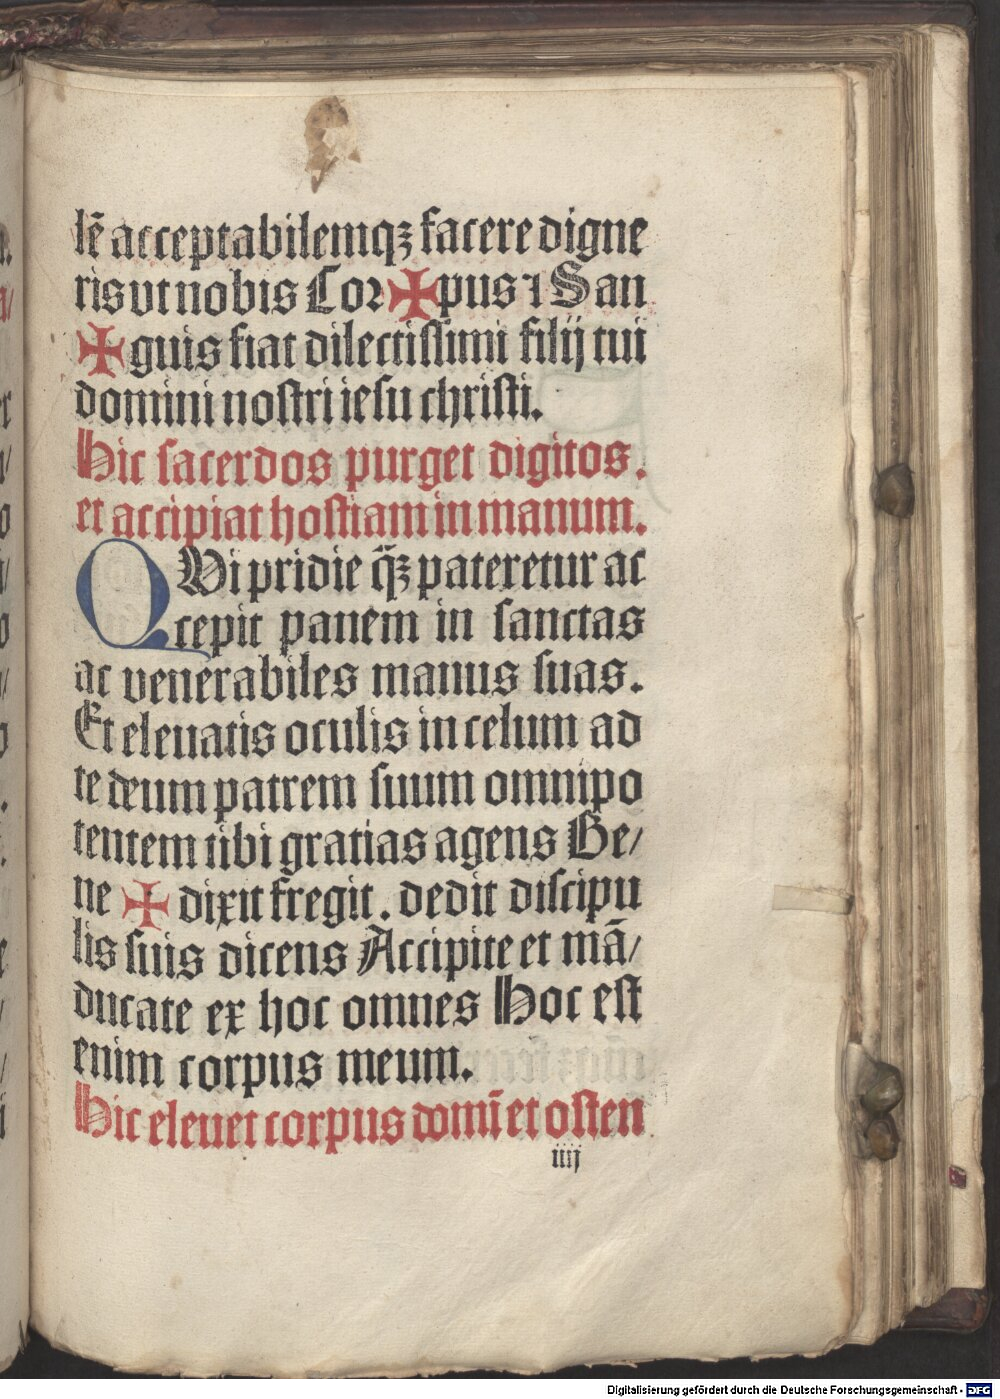 lē acceptabilemqꝫ facere digne
ris vt nobis Cor ✠ pus ⁊ San
✠ guis fiat dilectissimi filij tui
domini nostri iesu christi.
Hic sacerdos purget digitos.
et accipiat hostiam in manum.
QVi pridie q̄ꝫ pateretur ac
cepit panem in sanctas
ac venerabiles manus suas.
Et eleuatis oculis in celum ad
te deum patrem suum omnipo
tentem tibi gratias agens Be/
ne ✠ dixit fregit. dedit discipu
lis suis dicens Accipite et mā/
ducate ex hoc omnes Hoc est
enim corpus meum.
Hic eleuet corpus domī et osten
iiij
Digitalisierung gefördert durch die Deutsche Forschungsgemeinschaft - DFG